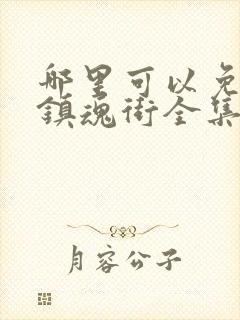 哪里可以免
鎮魂街全集
月容公子